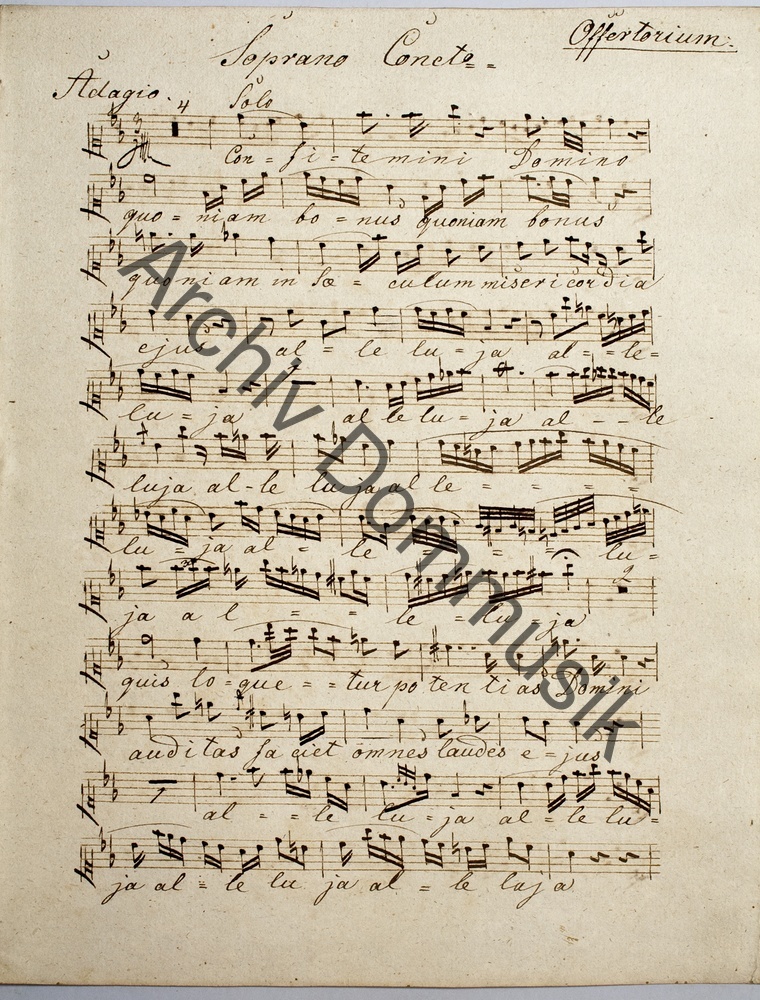 Offertorium.
Soprano Concto
Adagio. 4 Solo
Con = fi = te mini Domino
quo = niam bo = nus quoniam bonus
quoniam in Sæ = culum misericordia
ejus al = le lu = ja al = = le =
lu = ja al le lu = ja al - - le
luja al - le lu ja al le = = = =
lu = ja al = le = = = lu =
ja a l = = le = lu = ja
2
quis lo = que = = tur po ten ti as Domini
auditas fa ciet omnes laudes e = jus
1
al = = le lu = ja al = le lu =
ja al = le lu ja al = le luja
Archiv Dommusik